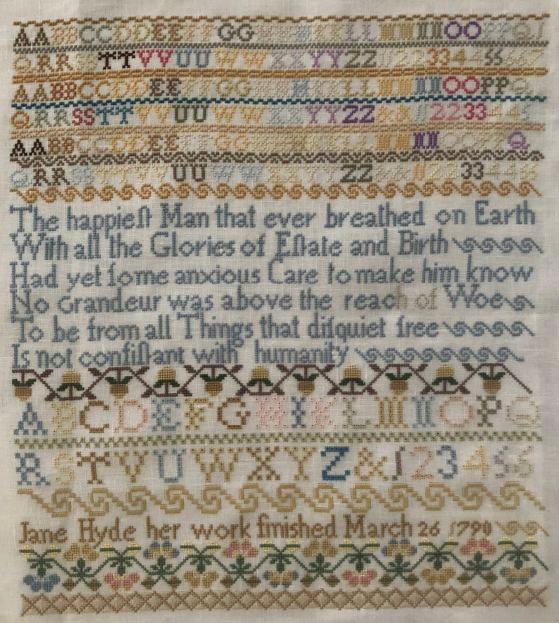 AABBCCDDEEFFGGHHIIKKLLMMNNOOPPQ
QRRSSTTVVUUWWXXYYZZ
AABBCCDDEEFFGGHHIIKKLLMMNNOOPPQ
QRRSSTTVVUUWWXXYYZZ&&112233445
AABBCCDDEEFFGG
RRSSTTVVUUWWXXYYZZ
The happieſt Man that ever breathed on Earth
With all the Glories of Eſtate and Birth
Had yet ſome anxious Care to make him know
No Grandeur was above the reach of Woe
To be from all Things that diſquiet free
Is not conſiſtant with humanity
ABCDEFGHIKLMNOPQ
RSTVUWXYZ&123456
Jane Hyde her work finished March 26 1790